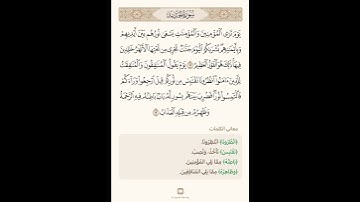 سورة الحديد
يَوْمَ تَرَى ٱلْمُؤْمِنِينَ وَٱلْمُؤْمِنَٰتِ يَسْعَىٰ نُورُهُم بَيْنَ أَيْدِيهِمْ
وَبِأَيْمَٰنِهِم بُشْرَىٰكُمُ ٱلْيَوْمَ جَنَّٰتٌ تَجْرِى مِن تَحْتِهَا ٱلْأَنْهَٰرُ خَٰلِدِينَ
فِيهَا ذَٰلِكَ هُوَ ٱلْفَوْزُ ٱلْعَظِيمُ ١٢ يَوْمَ يَقُولُ ٱلْمُنَٰفِقُونَ وَٱلْمُنَٰفِقَٰتُ
لِلَّذِينَ ءَامَنُوا۟ ٱنظُرُونَا نَقْتَبِسْ مِن نُّورِكُمْ قِيلَ ٱرْجِعُوا۟ وَرَآءَكُمْ
فَٱلْتَمِسُوا۟ نُورًا فَضُرِبَ بَيْنَهُم بِسُورٍ لَّهُۥ بَابٌۢ بَاطِنُهُۥ فِيهِ ٱلرَّحْمَةُ
وَظَٰهِرُهُۥ مِن قِبَلِهِ ٱلْعَذَابُ ١٣
معاني الكلمات
﴿انظُرُونَا﴾ انْتَظِرُونَا.
﴿نَقْتَبِسْ﴾ نَأْخُذْ، وَنُصِبْ.
﴿بَاطِنُهُ﴾ مِمَّا يَلِي المُؤْمِنِينَ.
﴿وَظَاهِرُهُ﴾ مِمَّا يَلِي المُنَافِقِينَ.